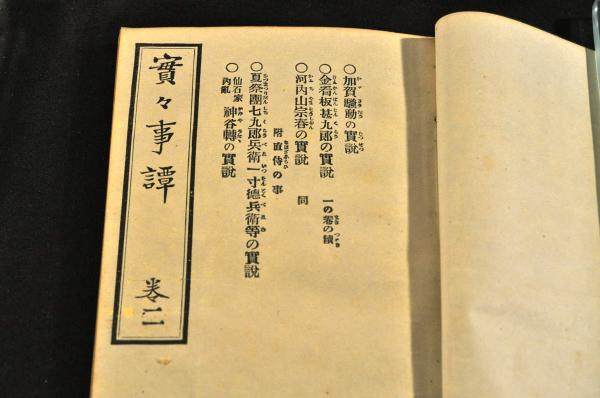 ○加賀騷動の實說
○金看板甚九郎の實說 一の卷の續
○河內山宗春の實說 同
附直侍の事
○夏祭團七九郎兵衛一寸德兵衛等の實說
○仙石家內亂 神谷轉の實說
實々事譚 卷二